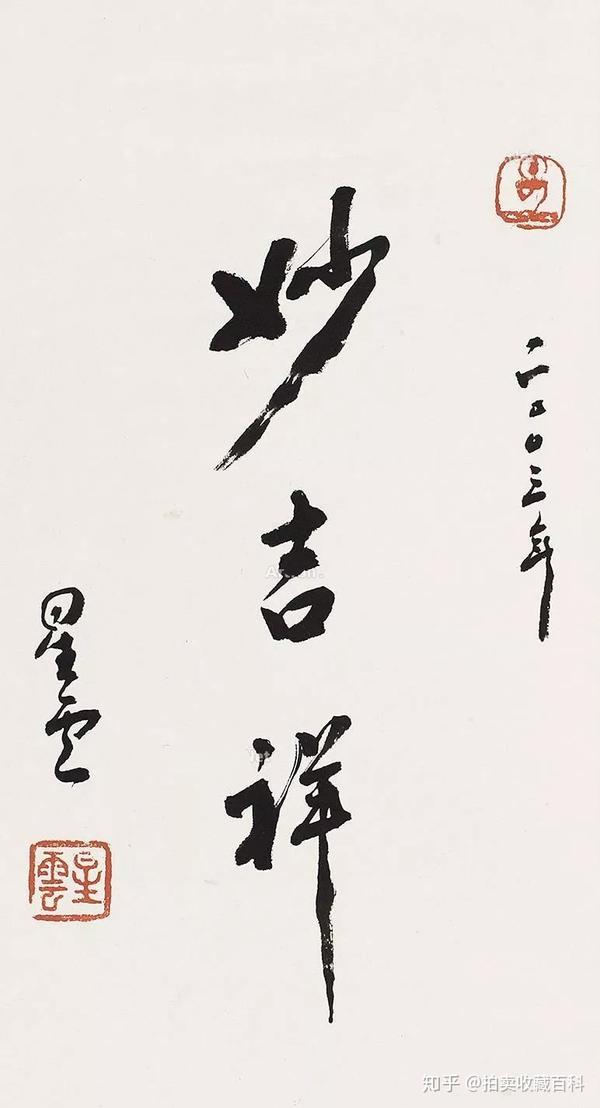 二〇〇三年
妙吉祥
星雲
星雲
知乎 @拍卖收藏百科